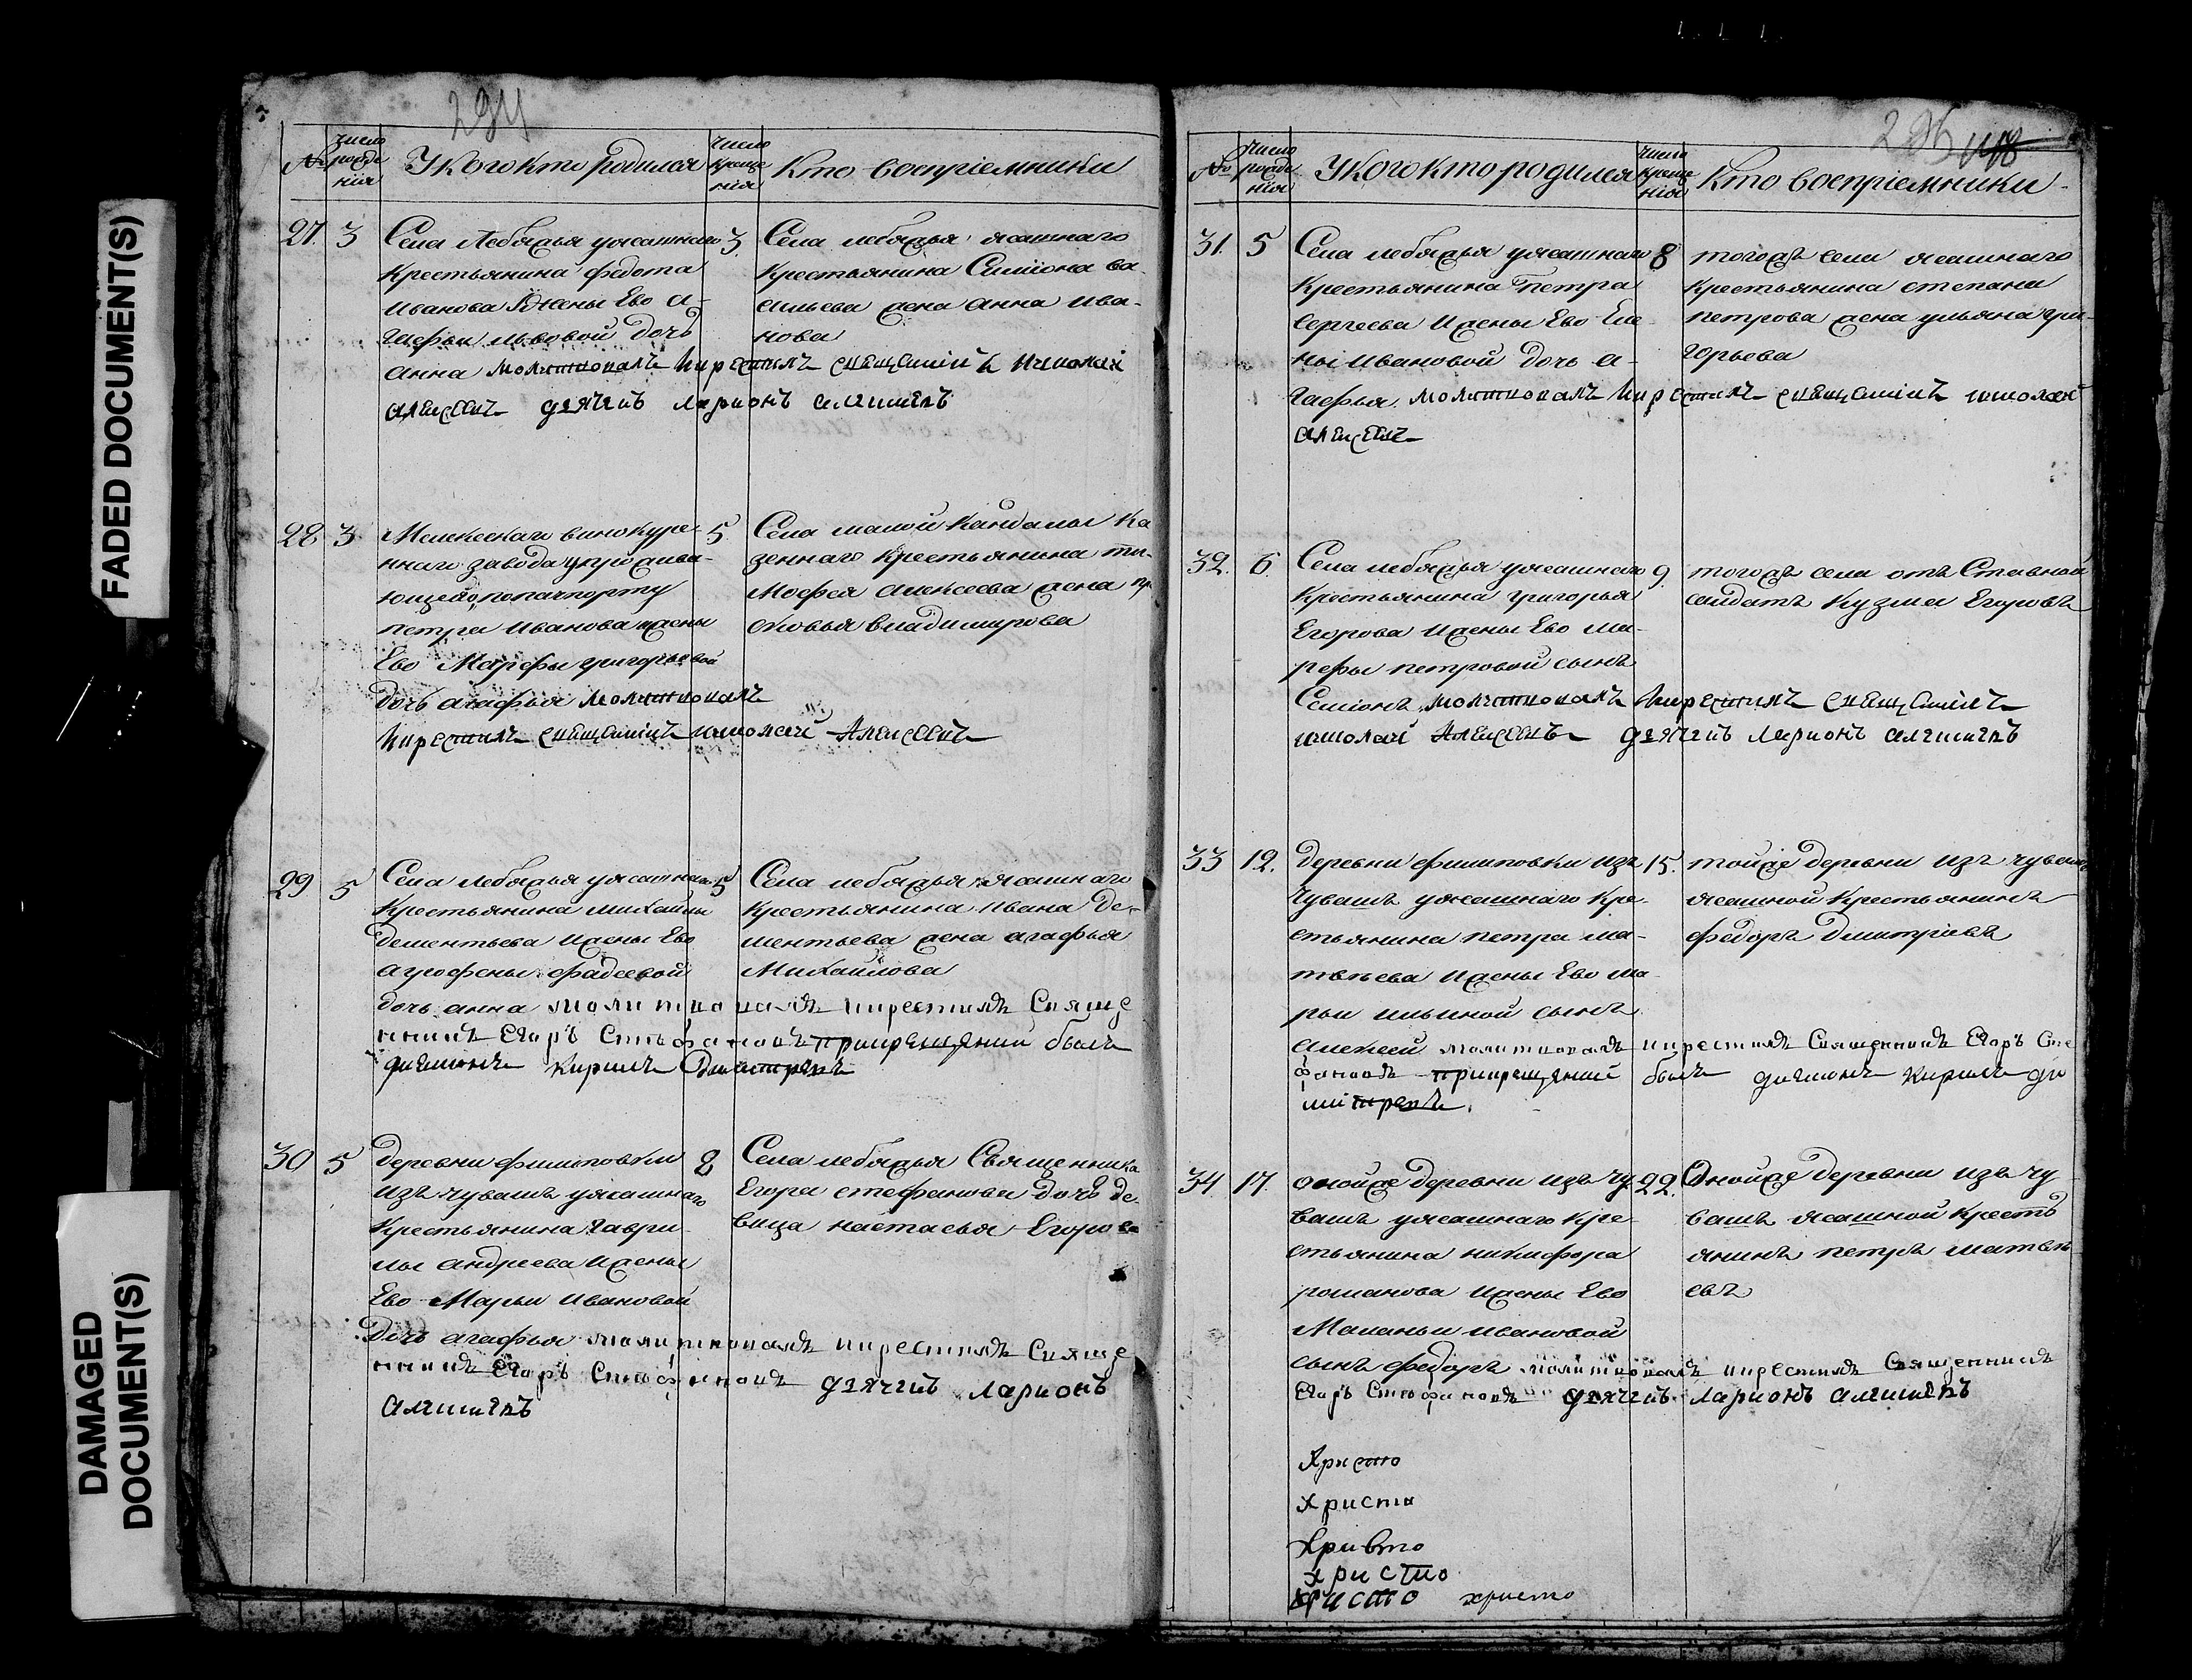 FADED DOCUMENT(S)
DAMAGED
DOCUMENT(S)
294
№
число
рожде
нія
У кого кто родился
число
креще
нія
Кто воспріемники
27. 3
Села Лебяжья уясашнаго
крестьянина федота
иванова Ижены Ево а-
гафьи львовой дочь
анна молитвовалъ икрестилъ священникъ николай
алексеевъ дячекъ ларионъ
3.
Села лебяжья ясашнаго
крестьянина Симиона ва-
сильева жена анна ива-
нова
28 3
Мелекескаго винокуре-
ннаго завода упрожива-
ющего попачпорту
петра иванова ижены
Ево Марфы григорьевой
дочь агафья молитвовалъ
икрестилъ священникъ николай Алексеевъ
5
Села малой Кандалы ка
зеннаго крестьянина ти-
мофея алексеева жена пр
сковья владимирова
29 5
Села лебяжья уясашнаго
крестьянина михайлы
дементьева ижены Ево
агрофены фадеевой
дочь анна молитвовалъ икрестилъ Свяще
нникъ Егоръ Стефановъ прикрещении былъ
дияконъ Кирилъ Димитревъ
5
Села лебяжья ясашнаго
крестьянина ивана де-
ментьева жена агафья
Михайлова
30 5
деревни филиповки
изъ чувашъ уясашнаго
крестьянина гаври-
лы андреева ижены
Ево Марьи ивановой
дочь агафья молитвовалъ икрестилъ Свяще
нникъ Егоръ Стефановъ дячекъ ларионъ
8
Села лебяжья Священника
Егора стефанова дочь де-
вица настасья Егорова
№
число
рожде
нія
У кого кто родился
число
креще
нія
Кто воспріемники
31. 5
Села лебяжья уясашнаго
крестьянина петра
сергеева ижены Ево Еле
ны ивановой дочь а-
гафья. молитвовалъ икрестилъ священникъ николай
алексеевъ
8
тогожъ села ясашнаго
крестьянина степана
петрова жена ульяна гри-
горьева
32. 6.
Села лебяжья уясашнаго
крестьянина григорья
Егорова ижены Ево ма-
рфы петровой сынъ
Семионъ молитвовалъ икрестилъ священникъ
николай Алексеевъ дячекъ ларионъ
9.
тогожъ села отъ Ставной
салдатъ Кузма Егоровъ
33 12.
деревни филиповки изъ
чувашъ уясашнаго кре-
стьянина петра ма-
твѣева ижены Ево ма
рьи ильиной сынъ
алексей молитвовалъ икрестилъ Священникъ Егоръ Сте
фановъ прикрещении былъ дияконъ Кирилъ ди
митревъ.
15.
тойже деревни изъ чувашъ
ясашной крестьянинъ
федоръ дмитриевъ
34. 17.
оной же деревни изъ чу
вашъ уясашнаго кре-
стьянина никифора
романова ижены Ево
Маланьи ивановой
сынъ федоръ молитвовалъ икрестилъ Священникъ
Егоръ Стефановъ дячекъ ларионъ
22.
Оной же деревни изъ чу
вашъ ясашной кресть
янинъ петръ матвѣ
евъ
Христо
христо
Христо
христо
христо христо